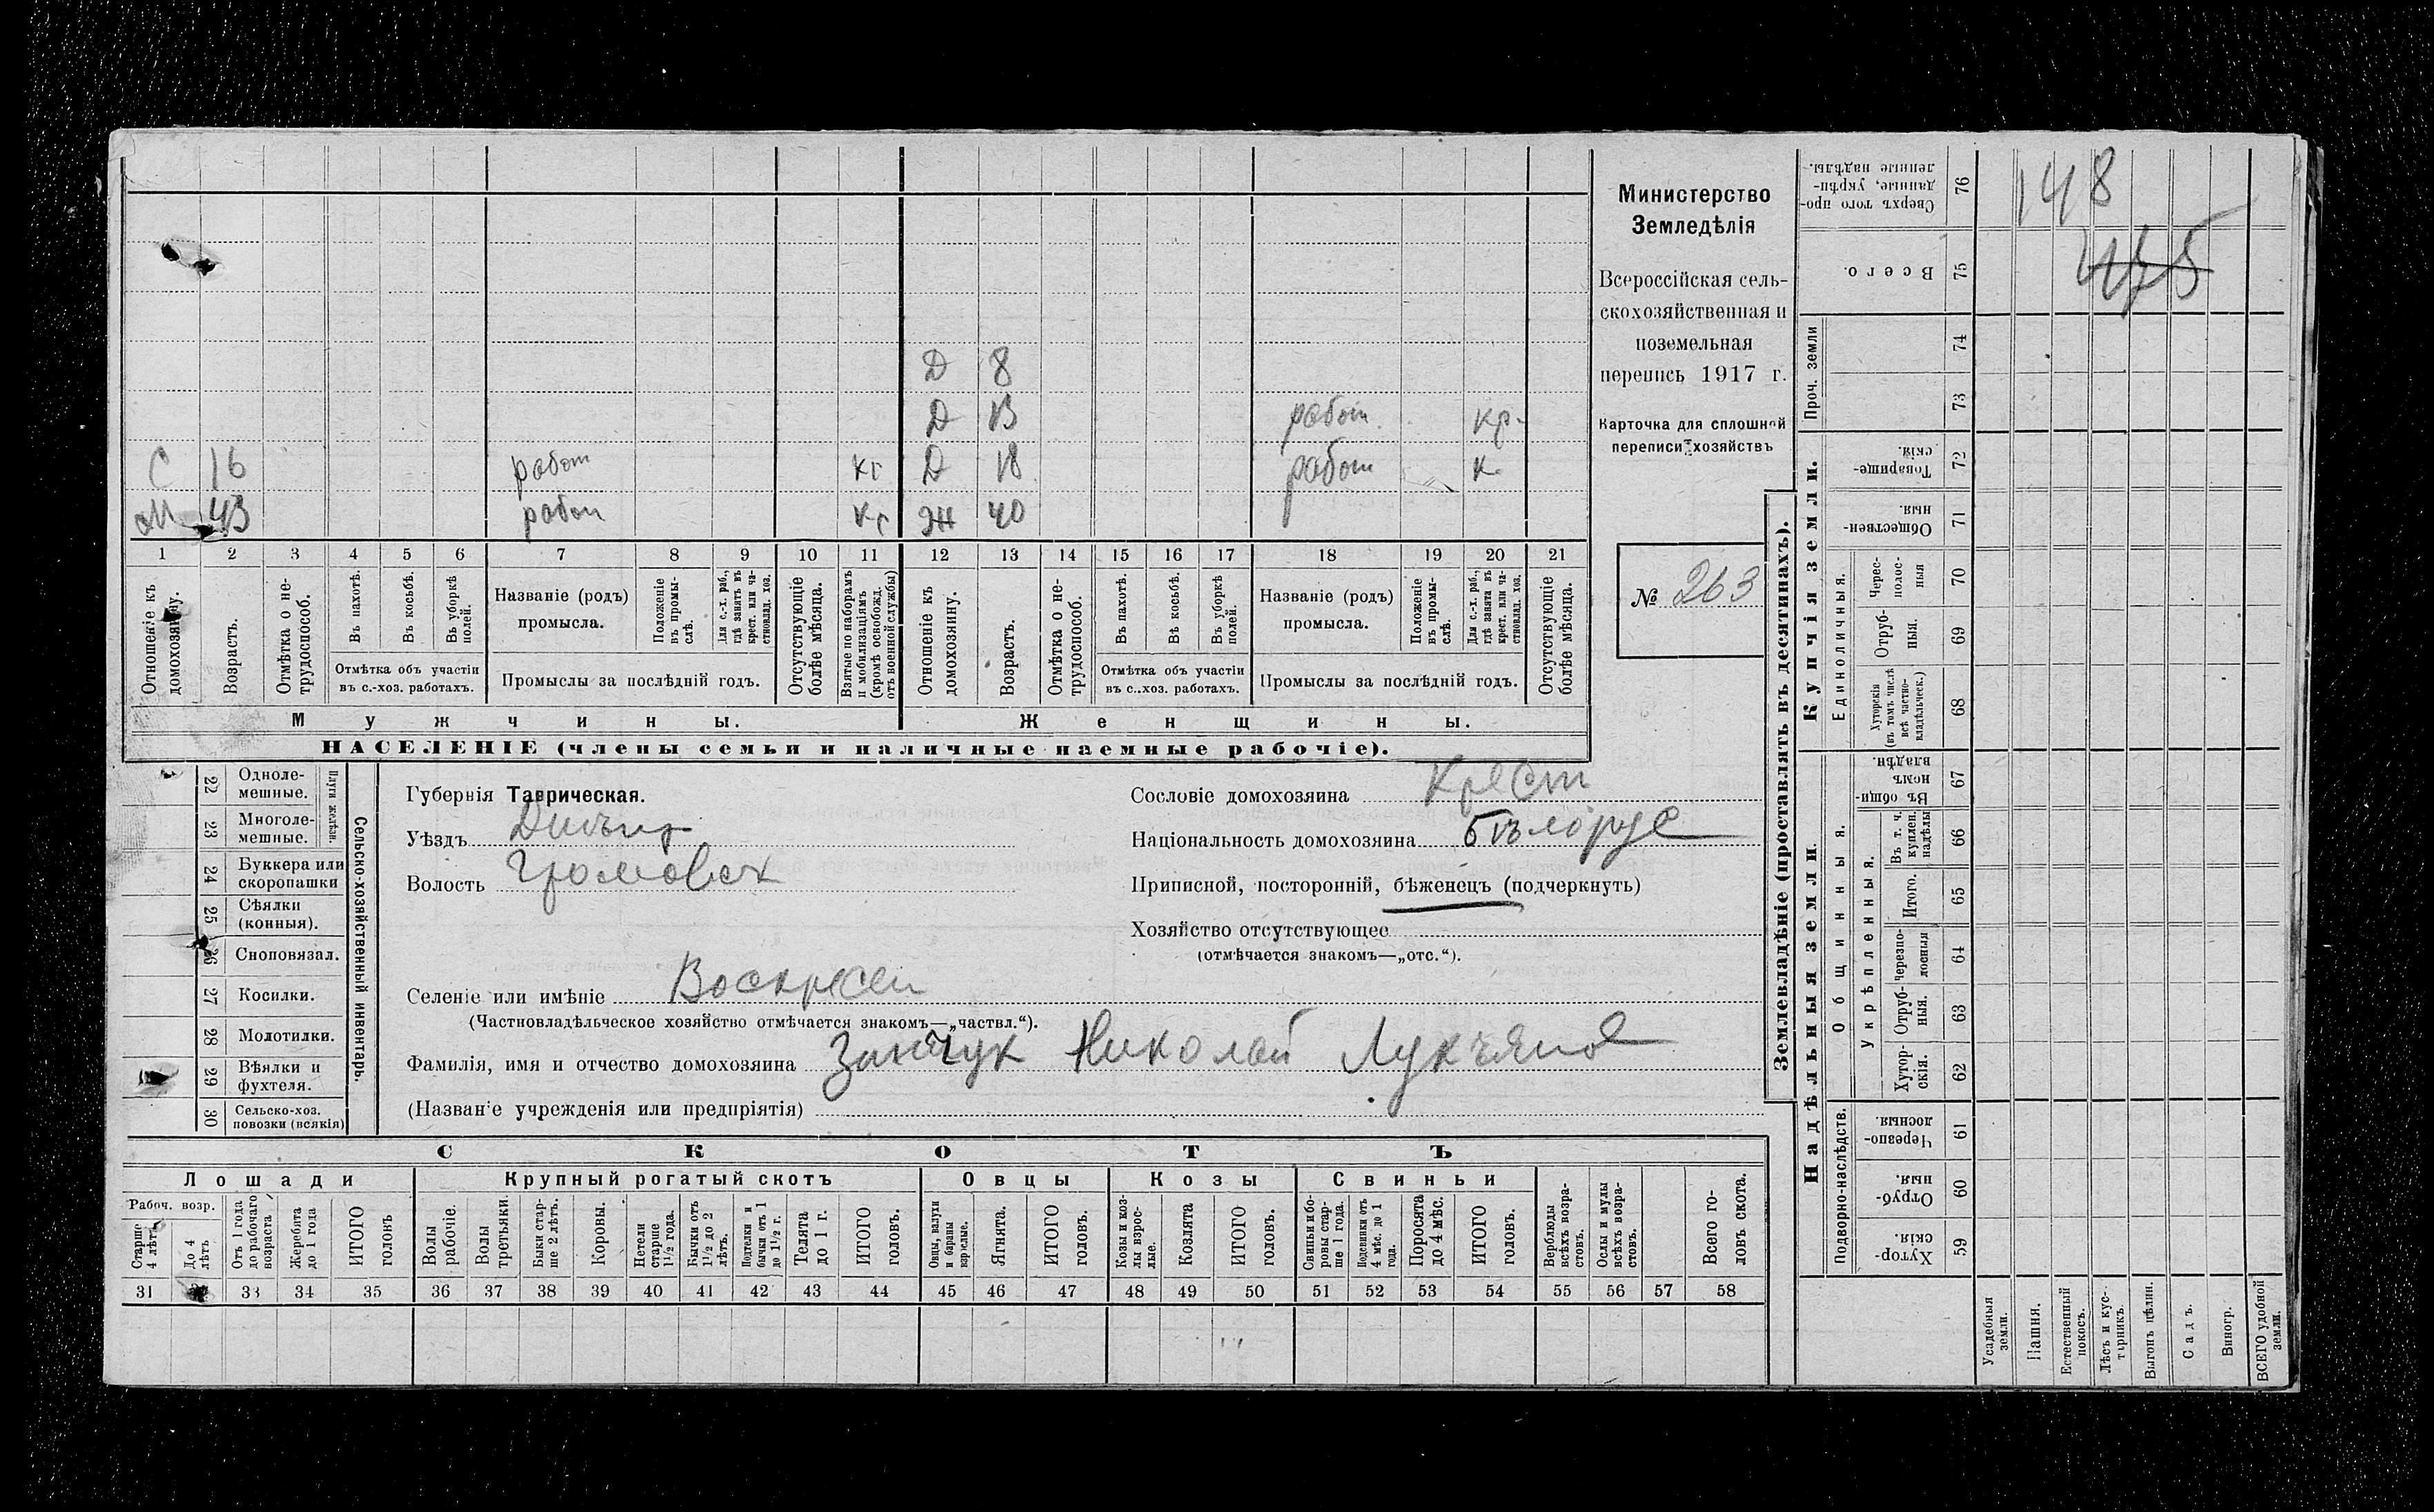 Д 8
Д 13 работ. кр.
С 16 работ кр Д 18 работ к
М 43 работ кр Ж 40
1 2 3 4 5 6 7 8 9 10 11 12 13 14 15 16 17 18 19 20 21
Отношеніе къ домохозяину.
Возрастъ.
Отмѣтка о нетрудоспособ.
Въ пахотѣ.
Въ косьбѣ.
Въ уборкѣ полей.
Отмѣтка объ участіи
въ с.-хоз. работахъ.
Названіе (родъ)
промысла.
Положеніе въ промы-
слѣ.
Для с.-х. раб.,
гдѣ занятъ въ
крест. или ча-
стновлад. хоз.
Промыслы за послѣдній годъ.
Отсутствующіе
болѣе мѣсяца.
Взятые по наборамъ
и мобилизаціямъ
(кромѣ освобожд.
отъ военной службы)
Отношеніе къ
домохозяину.
Возрастъ.
Отмѣтка о не-
трудоспособ.
Въ пахотѣ.
Въ косьбѣ.
Въ уборкѣ
полей.
Отмѣтка объ участіи
въ с.-хоз. работахъ.
Названіе (родъ)
промысла.
Положеніе
въ промы-
слѣ.
Для с.-х. раб.,
гдѣ занята въ
крест. или ча-
стновлад. хоз.
Промыслы за послѣдній годъ.
Отсутствующіе
болѣе мѣсяца.
Мужчины. Женщины.
НАСЕЛЕНІЕ (члены семьи и наличные наемные рабочіе).
Министерство
Земледѣлія
Всероссійская сель-
скохозяйственная и
поземельная
перепись 1917 г.
Карточка для сплошной
переписи хозяйствъ
№ 263
Плуги желѣзн.
22 Одноле-
мешные.
23 Многоле-
мешные.
24 Буккера или
скоропашки
25 Сѣялки
(конныя).
26 Сноповязал.
27 Косилки.
28 Молотилки.
29 Вѣялки и
фухтеля.
30 Сельско-хоз.
повозки (всякія)
Сельско-хозяйственный инвентарь.
Губернія Таврическая.
Уѣздъ
Волость Громовск
Сословіе домохозяина Крест
Національность домохозяина бѣлорус
Приписной, посторонній, бѣженецъ (подчеркнуть)
Хозяйство отсутствующее
(отмѣчается знакомъ—„отс.“).
Селеніе или имѣніе Воскресен
(Частновладѣльческое хозяйство отмѣчается знакомъ—„частвл.“).
Фамилія, имя и отчество домохозяина Николай Лукъянов
(Названіе учрежденія или предпріятія)
СКОТЪ
Лошади Крупный рогатый скотъ Овцы Козы Свиньи
Рабоч. возр.
Старше
4 лѣтъ
До 4
лѣтъ
Отъ 1 года
до рабочаго
возраста
Жеребята
до 1 года
ИТОГО
головъ
Волы
рабочіе.
Волы
третьяки.
Быки стар-
ше 2 лѣтъ.
Коровы.
Нетели
старше
1½ года.
Бычки отъ
1½ до 2
лѣтъ.
Подтелки и
бычки отъ 1
до 1½ г.
Телята
до 1 г.
ИТОГО
головъ.
Овцы, валухи
и бараны
взрослые.
Ягнята.
ИТОГО
головъ.
Козы и коз-
лы взрос-
лые.
Козлята
ИТОГО
головъ.
Свиньи и бо-
ровы стар-
ше 1 года.
Подсвинки отъ
4 мѣс. до 1
года.
Поросята
до 4 мѣс.
ИТОГО
головъ.
Верблюды
всѣхъ возра-
стовъ.
Ослы и мулы
всѣхъ возра-
стовъ.
Всего го-
ловъ скота.
31 32 33 34 35 36 37 38 39 40 41 42 43 44 45 46 47 48 49 50 51 52 53 54 55 56 57 58
Землевладѣніе (проставлять въ десятинахъ).
Купчія земли.
Надѣльныя земли.
148
Сверхъ того про-
данные, укрѣп-
ленные надѣлы.
76
Всего. 75
Проч. земли
74
73
Товарище-
скія. 72
Обществен-
ныя. 71
Единоличныя.
Черес-
полос-
ныя 70
Отруб-
ныя. 69
Хуторскія
(въ томъ числѣ
всѣ частно-
владѣльческ.) 68
Общинныя.
Въ общи-
номъ
владѣн. 67
Укрѣпленныя.
Въ т. ч.
куплен.
надѣлы 66
Итого. 65
Черезпо-
лосныя 64
Отруб-
ныя. 63
Хутор-
скія. 62
Подворно-наслѣдств.
Черезпо-
лосныя 61
Отруб-
ныя. 60
Хутор-
скія. 59
Усадебныя
земли.
Пашня.
Естественный
покосъ.
Лѣсъ и кус-
тарникъ.
Выгонъ цѣлин.
Садъ.
Виногр.
ВСЕГО удобной
земли.